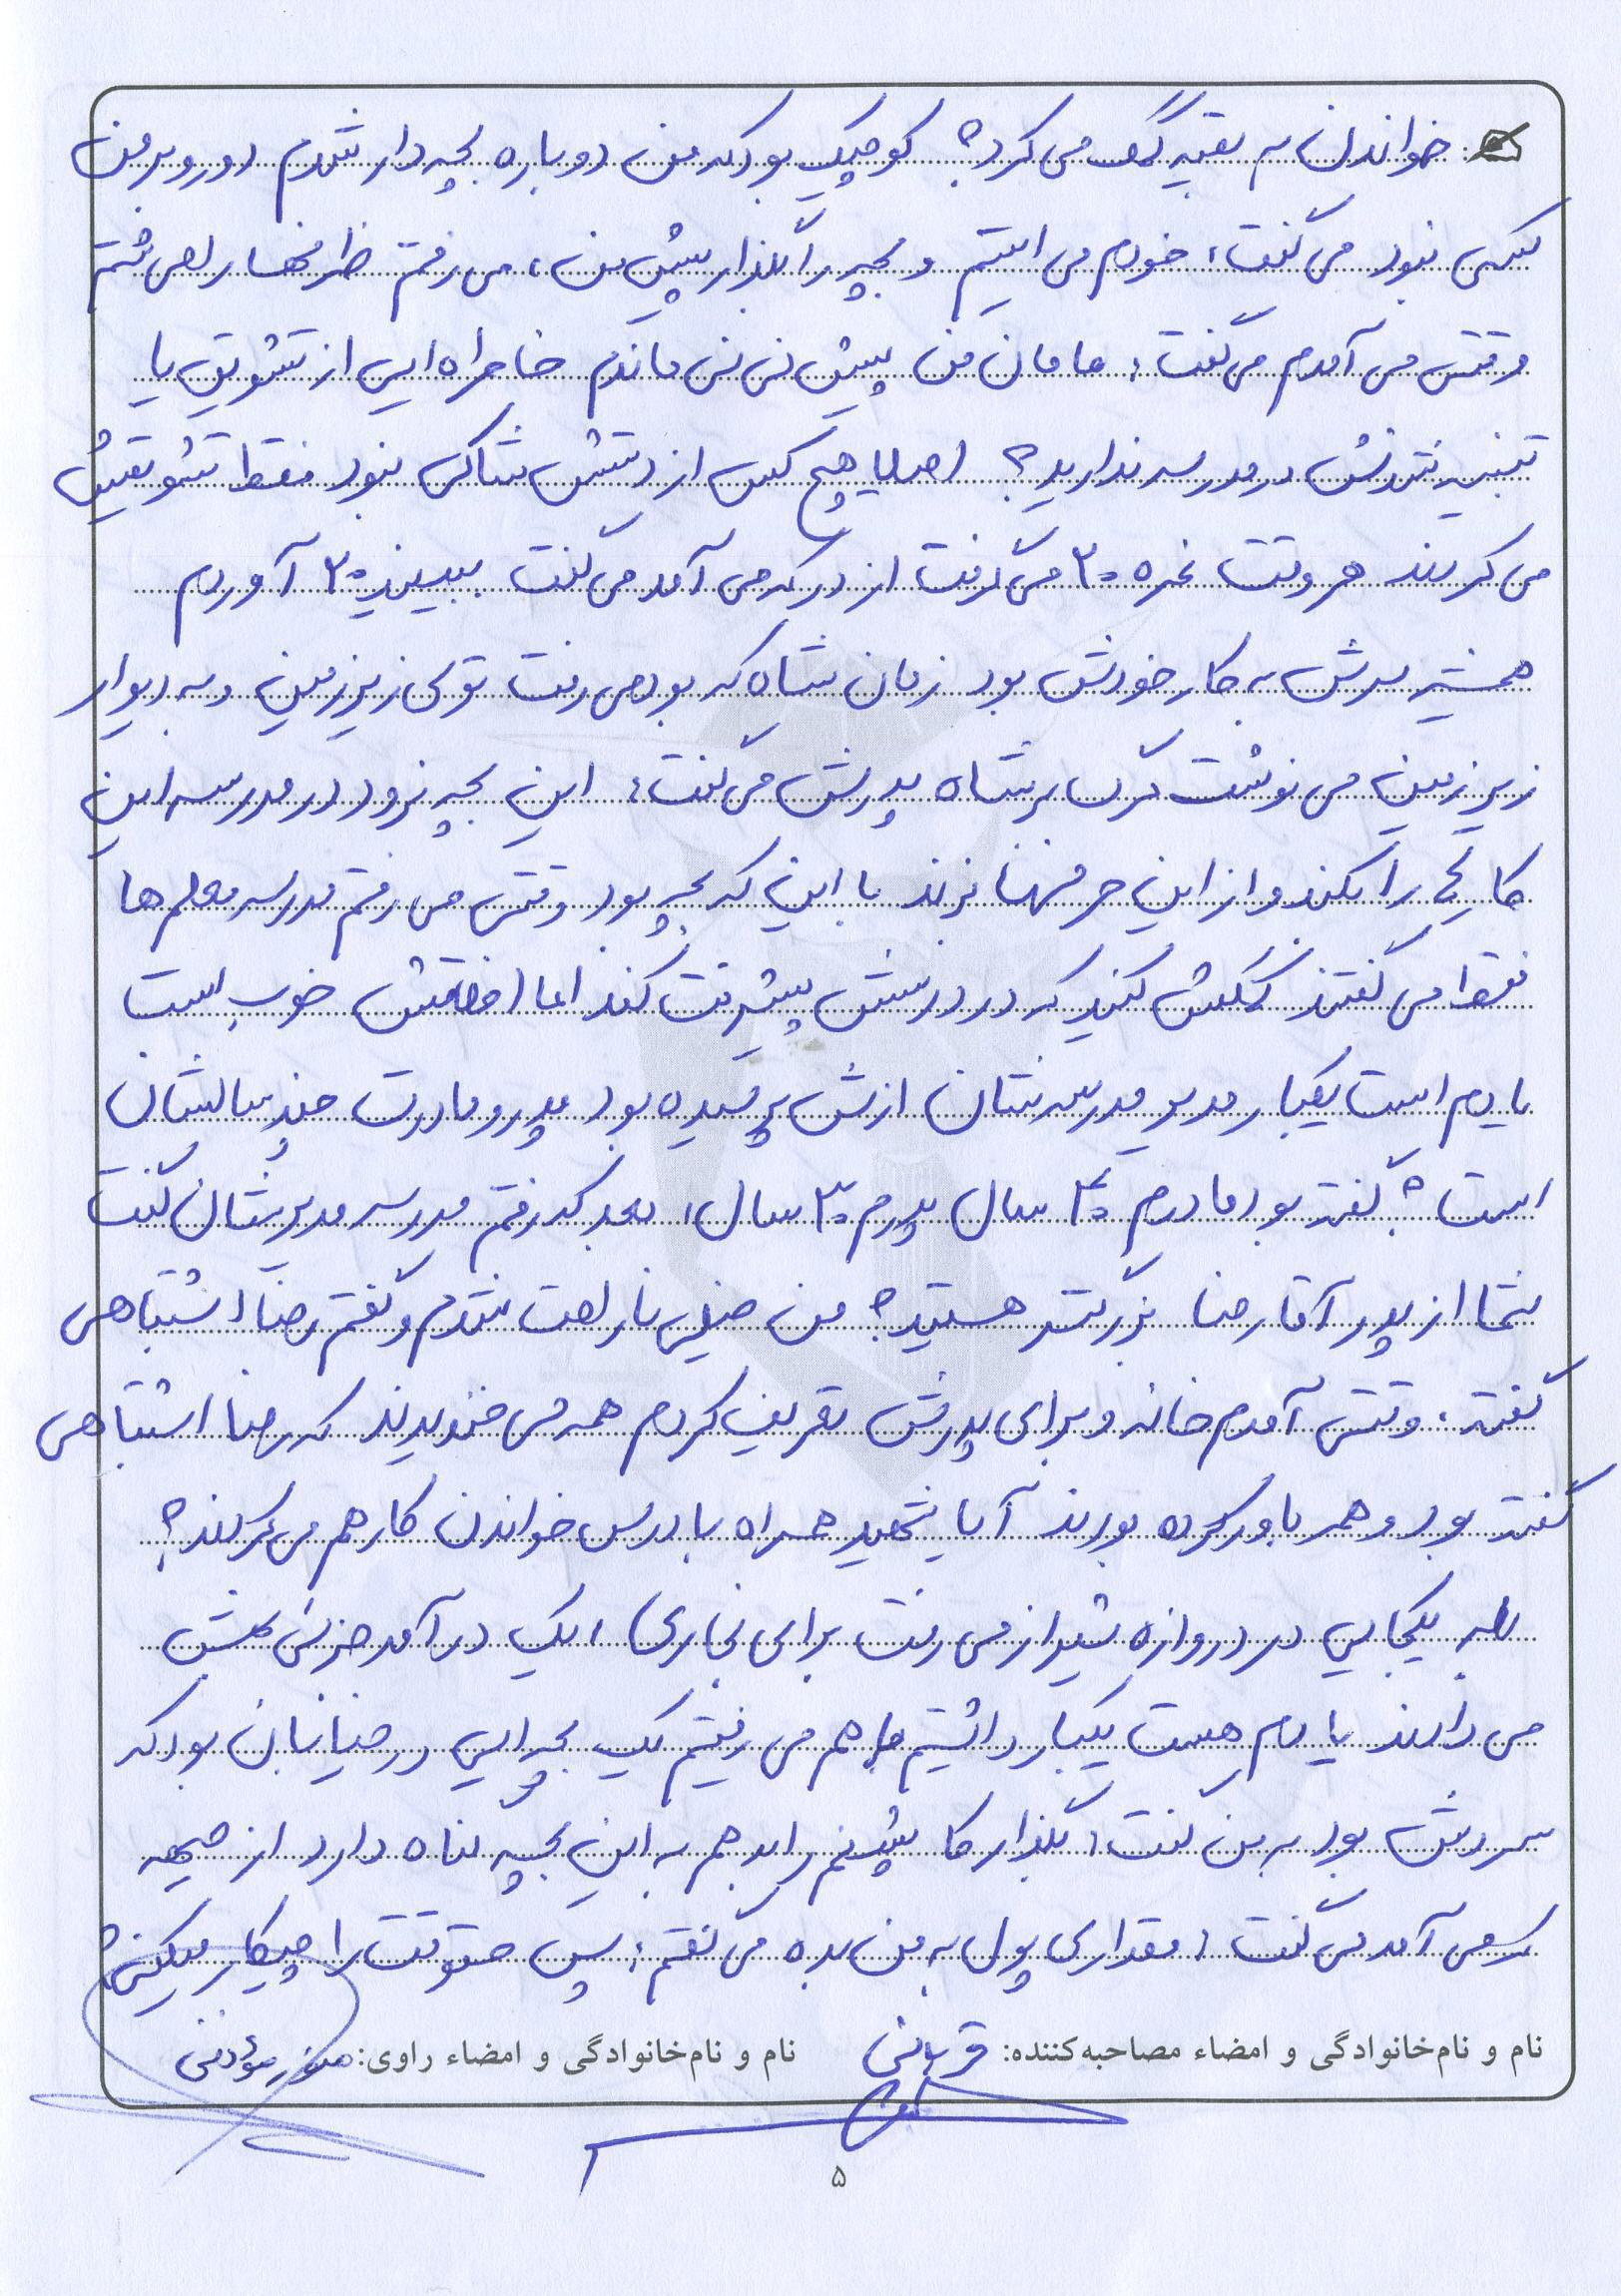 خواندن به بقیه کمک می کرد؟ کوچیک بود که من دوباره بچه دار شدم دور و بر من
کسی نبود می گفت: خودم می ایستم و بچه را بگذار پیش من، می رفتم ظرفها را می شستم
وقتی می آمدم می گفت: مامان من پیش نی نی ماندم خاطره ایی از تشویق یا
تنبیه شدنش در مدرسه ندارید؟ اصلا هیچ کس از دستش شاکی نبود فقط تشویقش
می کردند هر وقت نمره ۲۰ می گرفت از در که می آمد می گفت ببینید ۲۰ آوردم
همیشه سرش به کار خودش بود زمان شاه که بود می رفت توی زیرزمین و به دیوار
زیرزمین می نوشت مرگ بر شاه پدرش می گفت: این بچه نرود در مدرسه این
کارها را بکند و از این حرفها نزند با این که بچه بود وقتی می رفتم مدرسه معلم ها
فقط می گفتند کمکش کنید که در درسش پیشرفت کند اما اخلاقش خوب است
یادم است یکبار مدیر مدرسه شان ازش پرسیده بود پدر و مادرت چند سالشان
است؟ گفته بود مادرم ۴۰ سال پدرم ۳۰ سال، بعد که رفتم مدرسه مدیرشان گفت
شما از پدر آقا رضا بزرگتر هستید؟ من خیلی ناراحت شدم و گفتم رضا اشتباهی
گفته. وقتی آمدم خانه و برای پدرش تعریف کردم همه می خندیدند که رضا اشتباهی
گفته بود و همه باور کرده بودند آیا شهید همراه با درس خواندن کار هم می کردند؟
بله یکجایی در دروازه شیراز می رفت برای نجاری، یک درآمد جزئی بهش
می دادند یادم هست یکبار داشتیم با هم می رفتیم یک بچه ایی در خیابان بود که
سردش بود به من گفت: بگذار کاپشنم را بدهم به این بچه گناه دارد از جبهه
که می آمد می گفت: مقداری پول به من بده می گفتم: پس حقوقت را چیکار میکنی؟
نام و نام‌خانوادگی و امضاء مصاحبه‌کننده: قربانی نام و نام‌خانوادگی و امضاء راوی: مؤذنی
۵